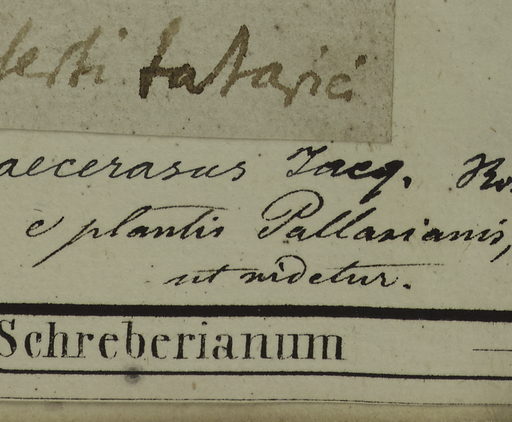 serti tatarici
aecerasus Jacq. Ro
e plantis Pallasianis,
ut videtur.
Schreberianum